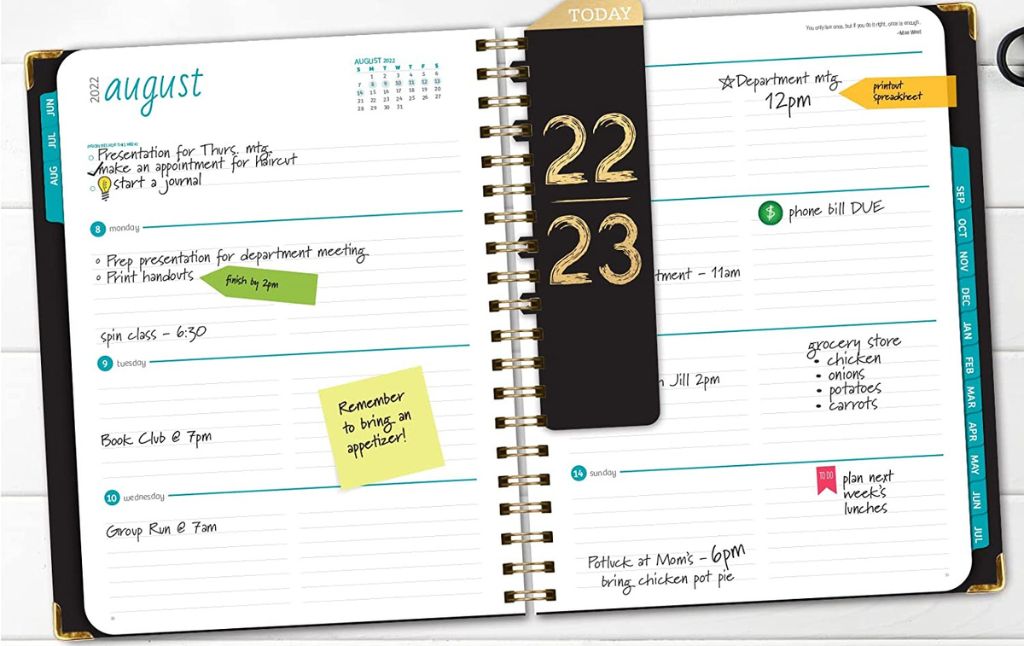 TODAY
You only live once, but if you do it right, once is enough.
-Mae West
2022
august
AUGUST 2022
S M T W T F S
1 2 3 4 5 6
7 8 9 10 11 12 13
14 15 16 17 18 19 20
21 22 23 24 25 26 27
28 29 30 31
JUN
JUL
AUG
Presentation for Thurs. mtg.
make an appointment for Haircut
start a journal
8 monday
Prep presentation for department meeting
Print handouts
finish by 2pm
spin class - 6:30
9 tuesday
Book Club @ 7pm
Remember
to bring an
appetizer!
10 wednesday
Group Run @ 7am
22
23
Department mtg
12pm
printout
spreadsheet
$ phone bill DUE
tment - 11am
Jill 2pm
grocery store
• chicken
• onions
• potatoes
• carrots
14 sunday
TO DO
plan next
week's
lunches
Potluck at Mom's - 6pm
bring chicken pot pie
SEP
OCT
NOV
DEC
JAN
FEB
MAR
APR
MAY
JUN
JUL